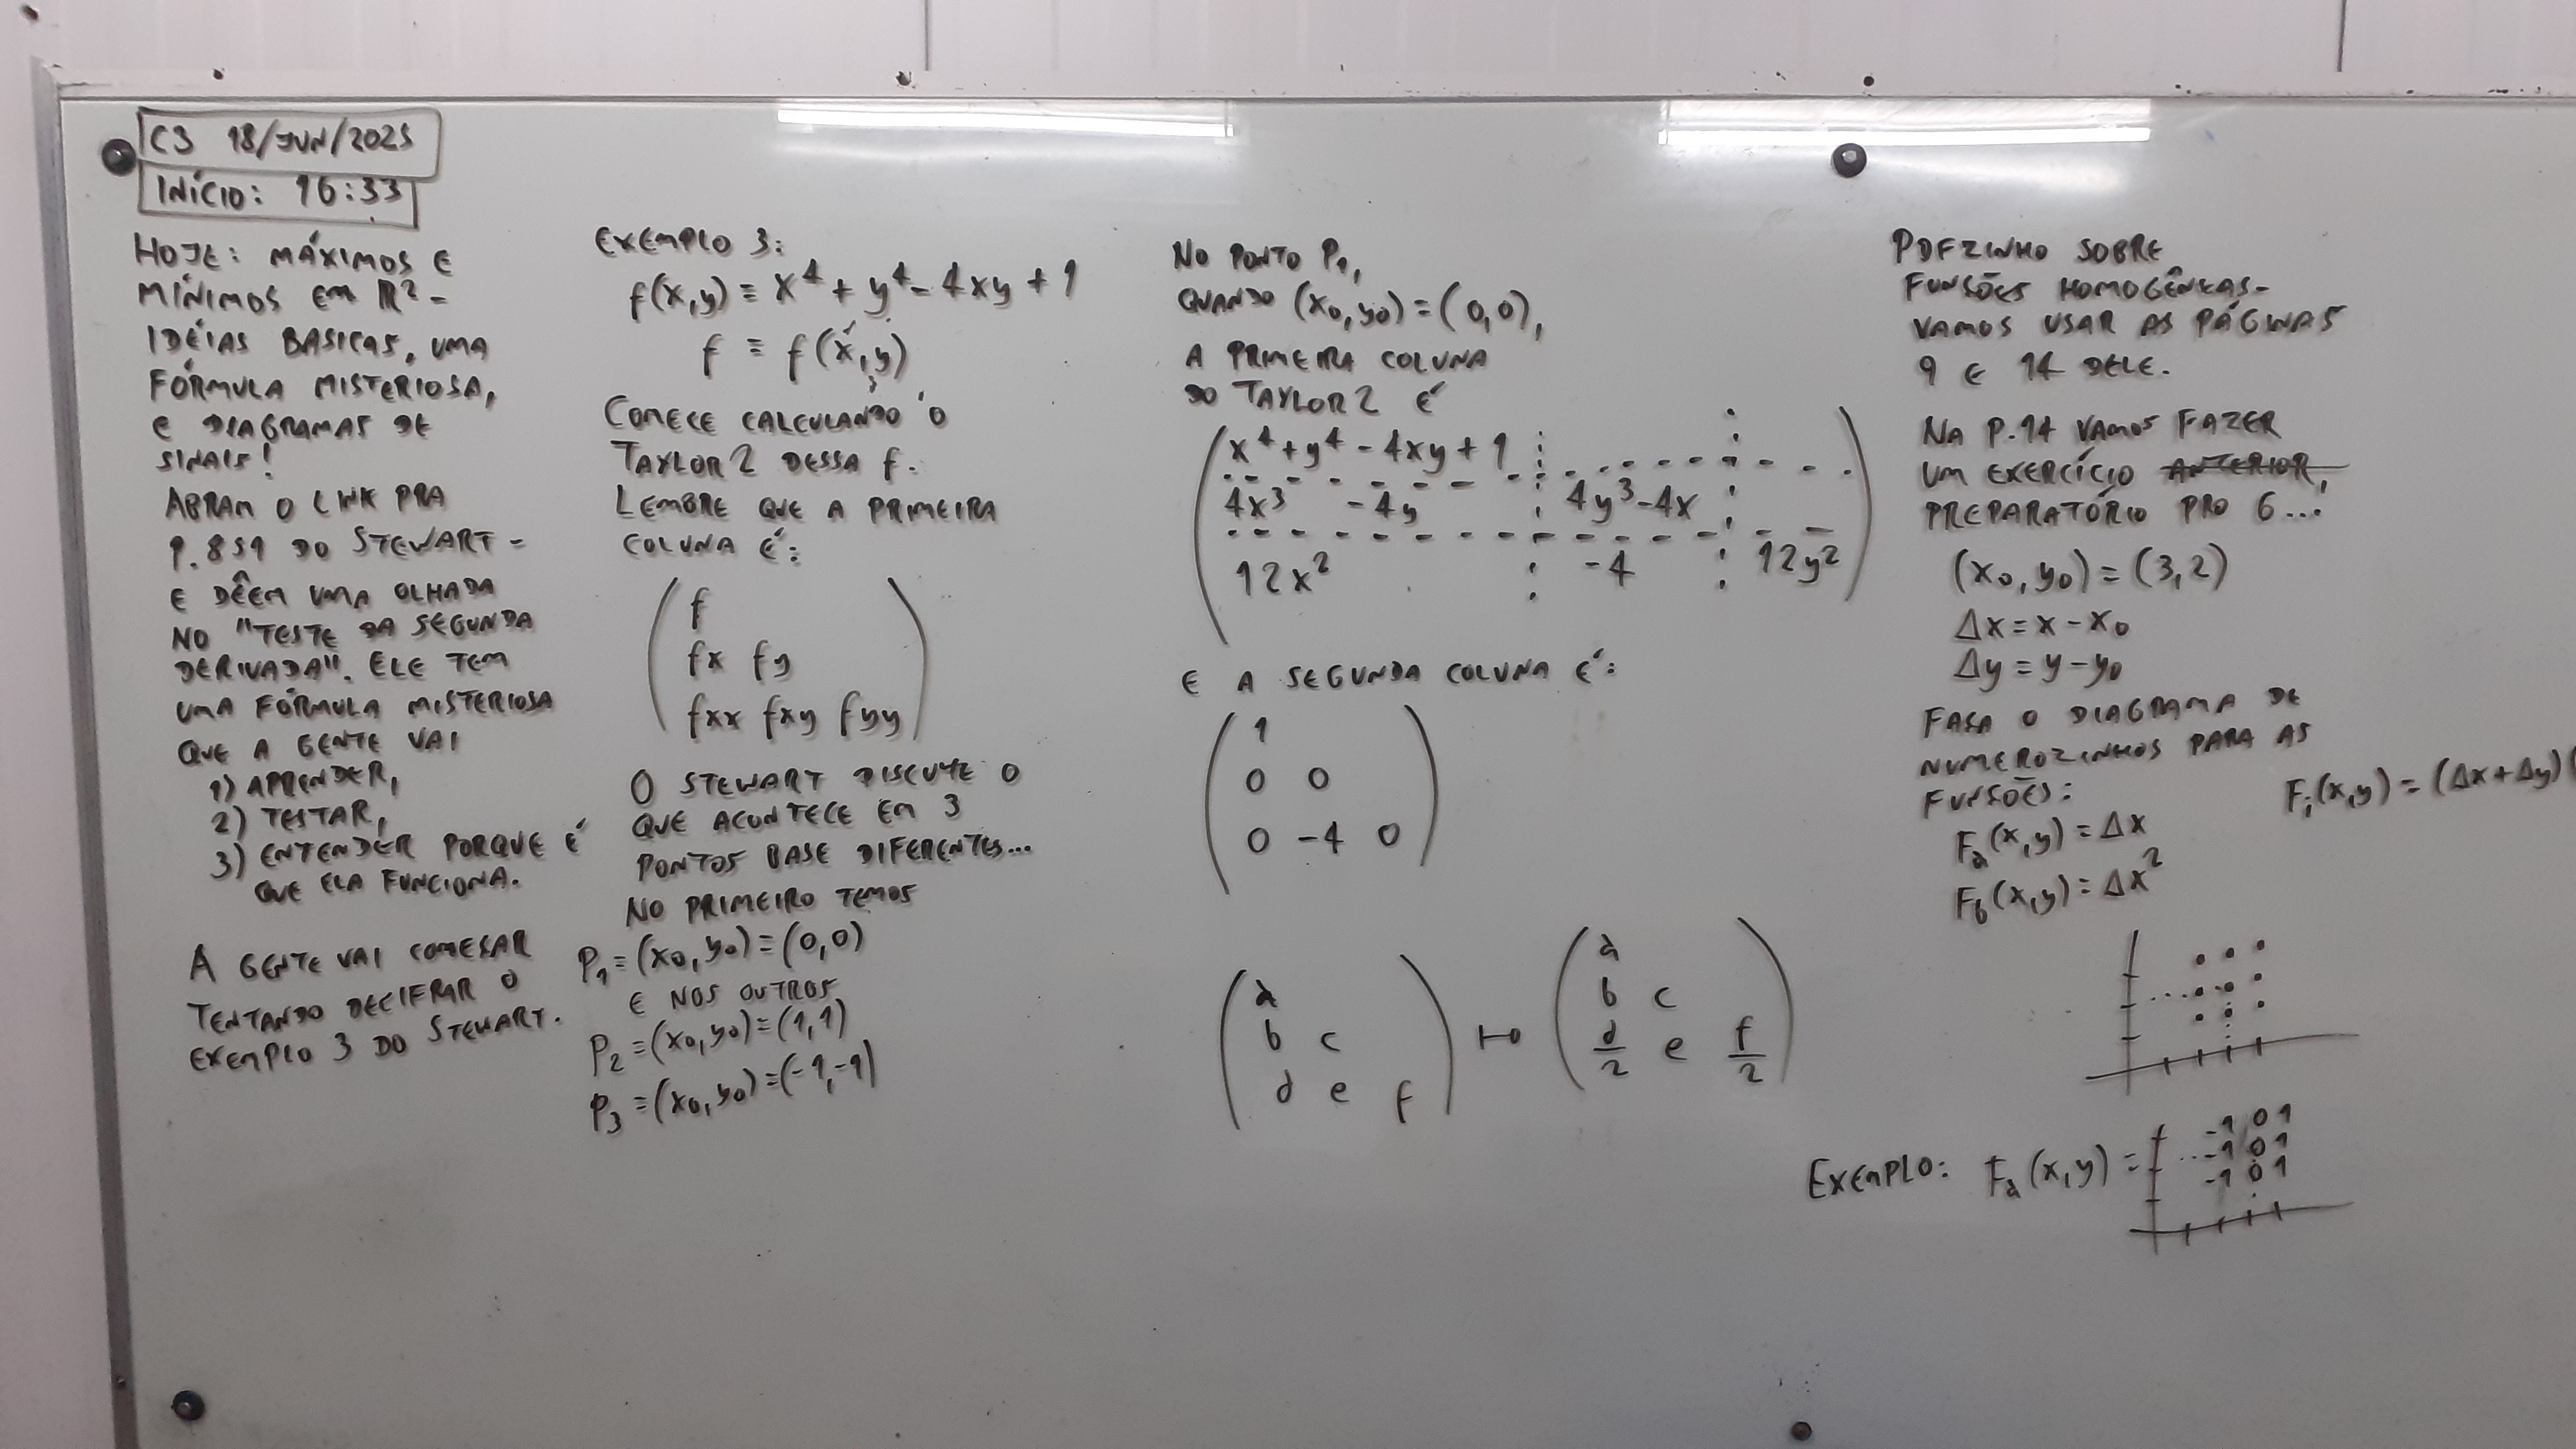 C3 18/JUN/2025
INÍCIO: 16:33
HOJE: MÁXIMOS E
MÍNIMOS EM R² -
IDÉIAS BÁSICAS, UMA
FÓRMULA MISTERIOSA,
E DIAGRAMAS DE
SINAIS!
ABRAM O LINK PRA
P.851 DO STEWART -
E DÊEM UMA OLHADA
NO "TESTE DA SEGUNDA
DERIVADA". ELE TEM
UMA FÓRMULA MISTERIOSA
QUE A GENTE VAI
1) APRENDER,
2) TESTAR,
3) ENTENDER PORQUE É
QUE ELA FUNCIONA.
A GENTE VAI COMEÇAR
TENTANDO DECIFRAR O
EXEMPLO 3 DO STEWART.
EXEMPLO 3:
f(x,y) = x⁴ + y⁴ - 4xy + 1
f = f(x,y)
COMECE CALCULANDO O
TAYLOR2 DESSA f.
LEMBRE QUE A PRIMEIRA
COLUNA É:
f
fx fy
fxx fxy fyy
O STEWART DISCUTE O
QUE ACONTECE EM 3
PONTOS BASE DIFERENTES...
NO PRIMEIRO TEMOS
P₁ = (x₀,y₀) = (0,0)
E NOS OUTROS
P₂ = (x₀,y₀) = (1,1)
P₃ = (x₀,y₀) = (-1,-1)
NO PONTO P₁,
QUANDO (x₀,y₀) = (0,0),
A PRIMEIRA COLUNA
DO TAYLOR2 É
x⁴ + y⁴ - 4xy + 1
4x³ - 4y 4y³ - 4x
12x² -4 12y²
E A SEGUNDA COLUNA É:
1
0 0
0 -4 0
a
b c
d e f
↦
a
b c
d/2 e f/2
PDFZINHO SOBRE
FUNÇÕES HOMOGÊNEAS -
VAMOS USAR AS PÁGINAS
9 E 14 DELE.
NA P.14 VAMOS FAZER
UM EXERCÍCIO ANTERIOR,
PREPARATÓRIO PRO 6...!
(x₀,y₀) = (3,2)
Δx = x - x₀
Δy = y - y₀
FAÇA O DIAGRAMA DE
NUMEROZINHOS PARA AS
FUNÇÕES:
Fₐ(x,y) = Δx
F_b(x,y) = Δx²
Fᵢ(x,y) = (Δx+Δy)(
EXEMPLO: Fₐ(x,y) =
-1 0 1
-1 0 1
-1 0 1